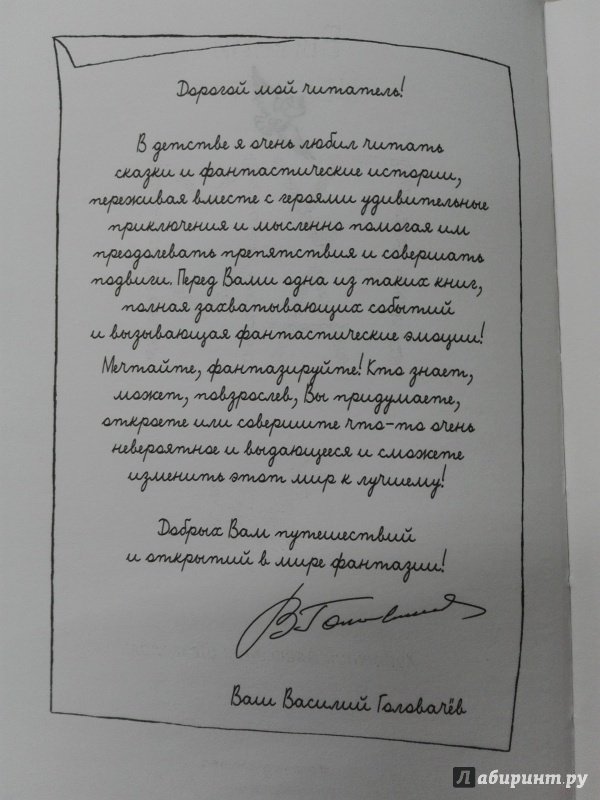 Дорогой мой читатель!
В детстве я очень любил читать
сказки и фантастические истории,
переживая вместе с героями удивительные
приключения и мысленно помогая им
преодолевать препятствия и совершать
подвиги. Перед Вами одна из таких книг,
полная захватывающих событий
и вызывающая фантастические эмоции!
Мечтайте, фантазируйте! Кто знает,
может, повзрослев, Вы придумаете,
откроете или совершите что-то очень
невероятное и выдающееся и сможете
изменить этот мир к лучшему!
Добрых Вам путешествий
и открытий в мире фантазии!
Ваш Василий Головачёв
лабиринт.ру